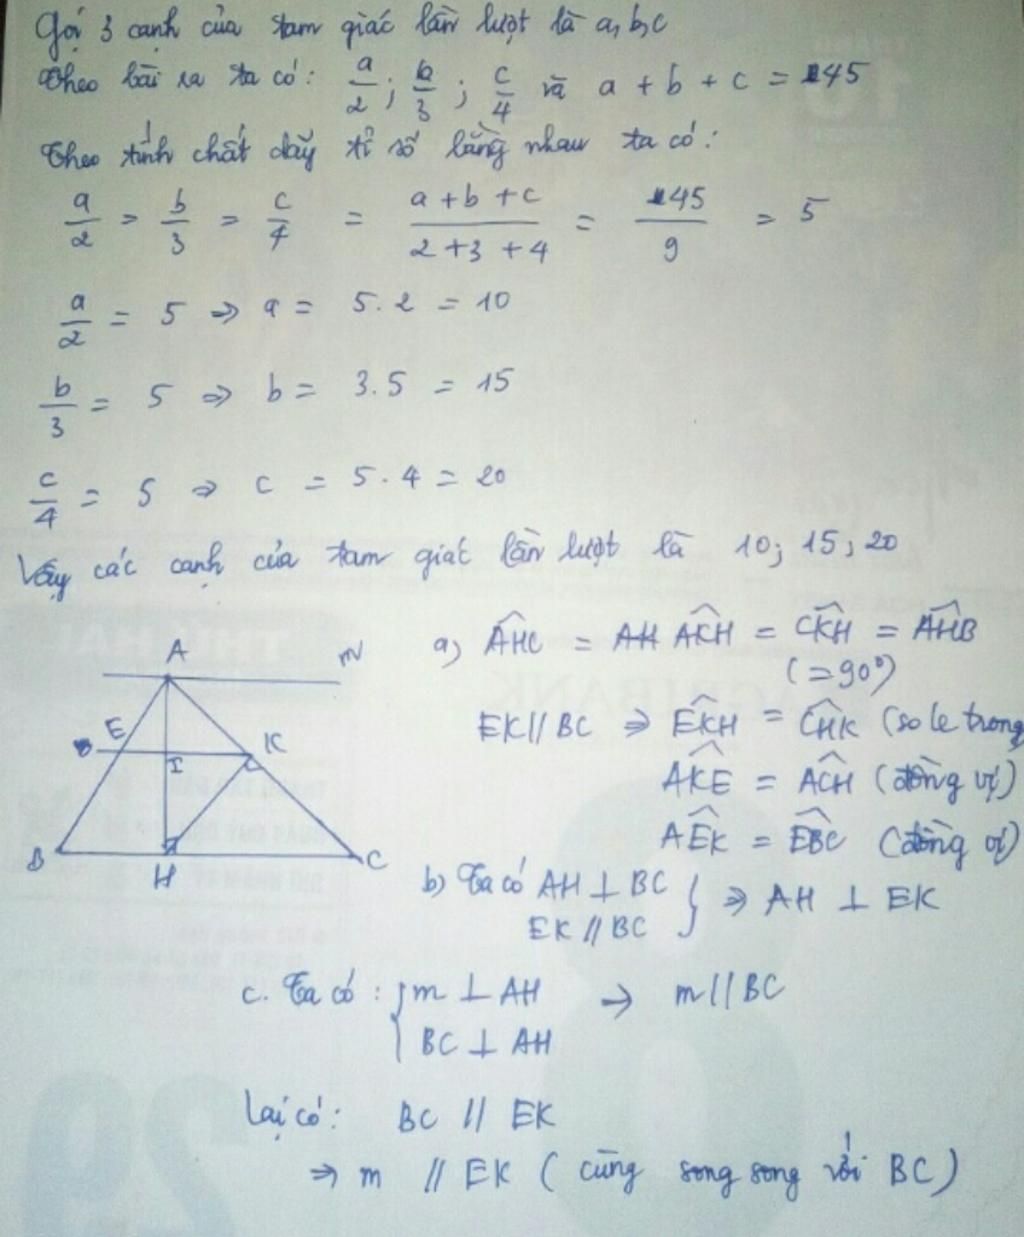 Gọi 3 cạnh của tam giác lần lượt là a, b, c
Theo bài ra ta có: a/2 ; b/3 ; c/4 và a + b + c = 45
Theo tính chất dãy tỉ số bằng nhau ta có:
a/2 = b/3 = c/4 = (a + b + c)/(2 + 3 + 4) = 45/9 = 5
a/2 = 5 => a = 5.2 = 10
b/3 = 5 => b = 3.5 = 15
c/4 = 5 => c = 5.4 = 20
Vậy các cạnh của tam giác lần lượt là 10; 15; 20
A
m
E
K
I
B
H
C
a) ∠AHC = AH ∠ACH = ∠CKH = ∠AHB
(=90°)
EK // BC => ∠EKH = ∠CHK (so le trong
∠AKE = ∠ACH (đồng vị)
∠AEK = ∠EBC (đồng vị)
b) Ta có AH ⊥ BC
EK // BC } => AH ⊥ EK
c. Ta có : { m ⊥ AH → m // BC
BC ⊥ AH
Lại có: BC // EK
=> m // EK ( cùng song song với BC )